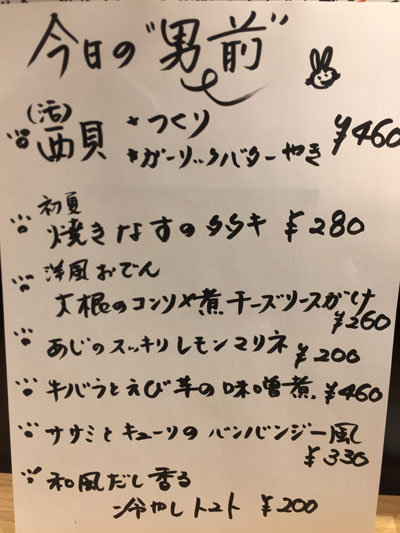 今日の"男前"
(活)
西貝 *つくり ¥460
*ガーリックバターやき
初夏
焼きなすのタタキ ¥280
洋風おでん
大根のコンソメ煮チーズソースがけ
¥260
あじのスッキリレモンマリネ ¥200
牛バラとえび芋の味噌煮. ¥460
ササミとキューリのバンバンジー風
¥330
和風だし香る
冷やしトマト ¥200